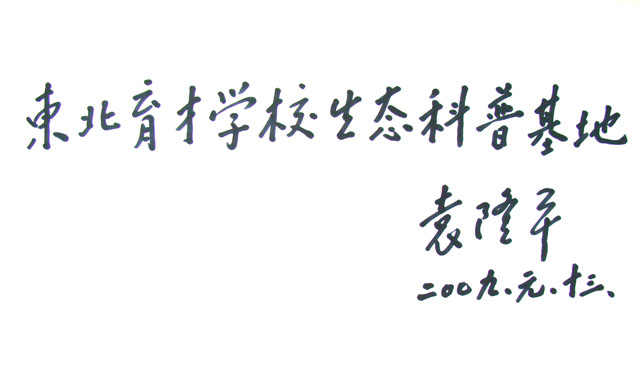 東北育才学校生态科普基地
袁隆平
二〇〇九.元.十三.